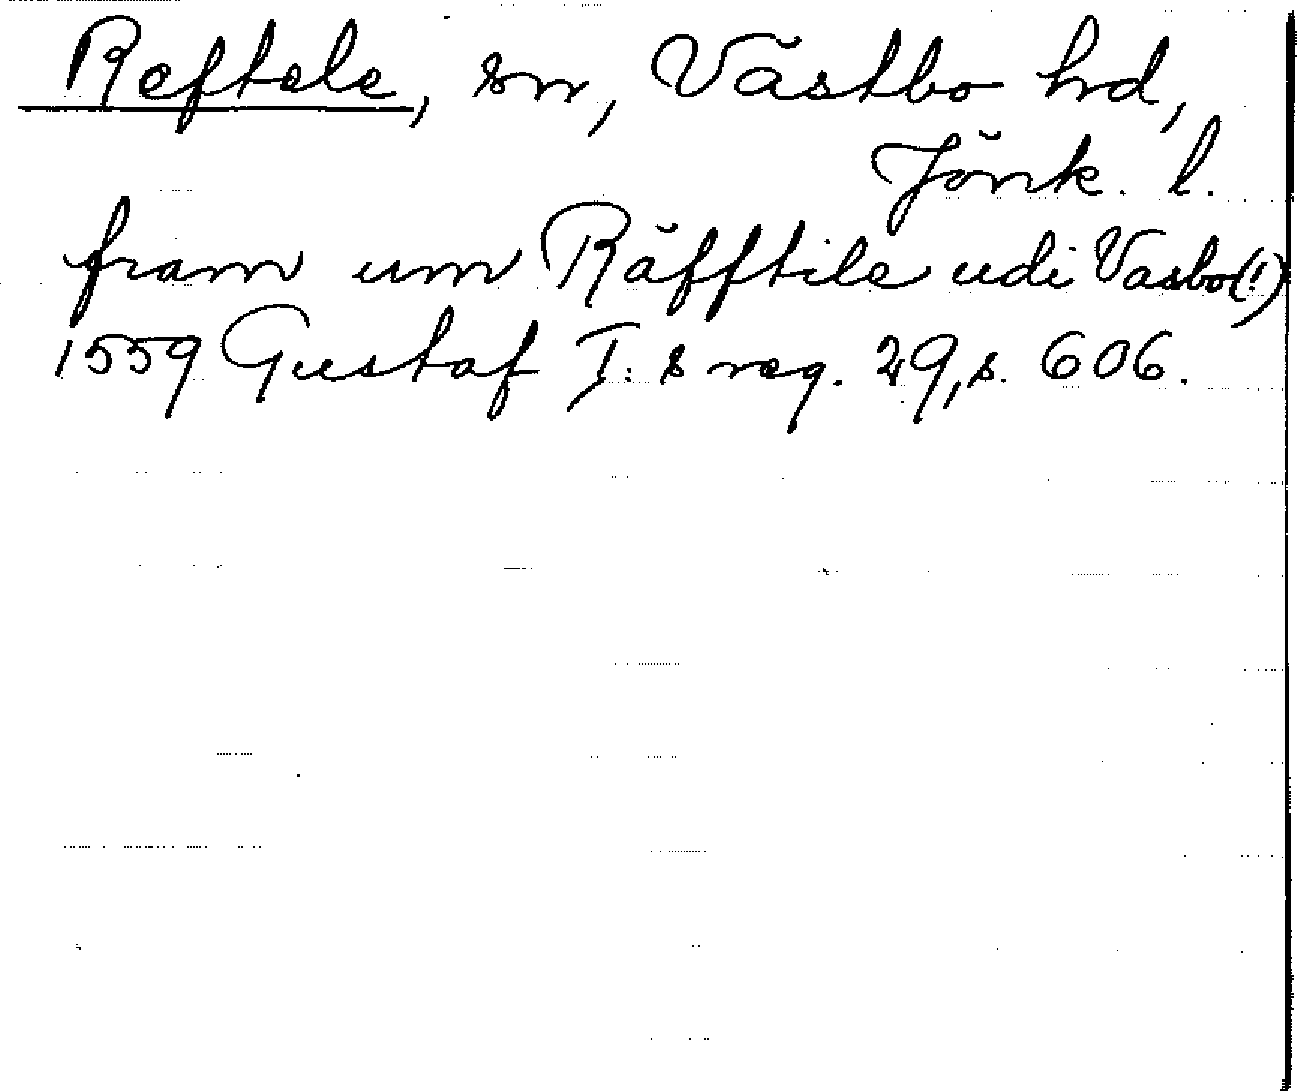 Reftele, sn, Västbo hd,
Jönk. l.
fram um Räfftile udi Vasbo(!)
1559 Gustaf I:s reg. 29, s. 606.